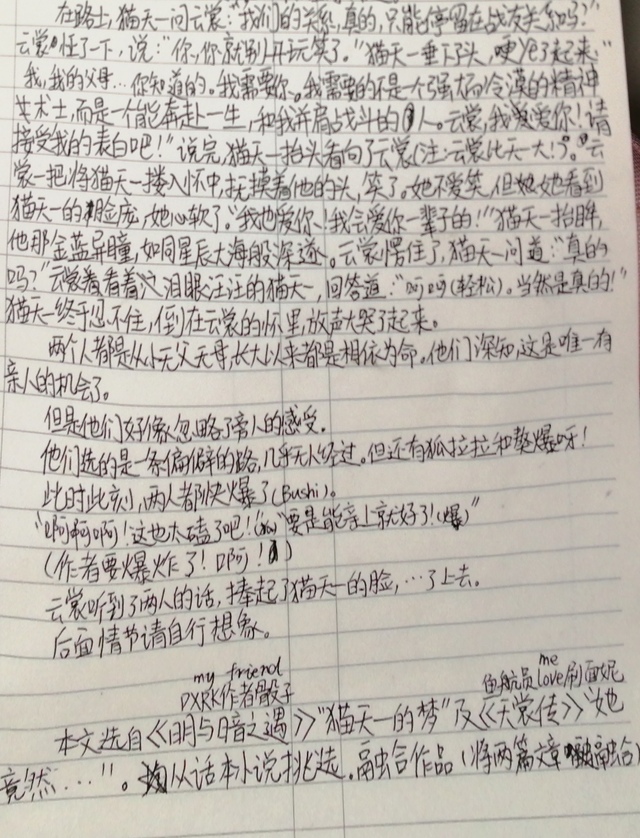 在路上,猫天一问云裳:"我们的关系,真的,只能停留在战友关系吗?"
云裳怔了下,说:"你,你就别开玩笑了。"猫天一垂下头,哽咽了起来:"
我,我的父母…你知道的。我需要你。我需要的不是个强大而冷漠的精神
艺术士,而是一个能奔赴一生,和我并肩战斗的人。云裳,我爱你!请
接受我的表白吧!"说完,猫天一抬头看向了云裳(注:云裳比天一大!)。云
裳一把将猫天一搂入怀中,抚摸着他的头,笑了。她不爱笑,但她看到
猫天一的脸庞,她心软了。"我也爱你、我会爱你一辈子的!"猫天一抬眸,
他那金蓝异瞳,如同星辰大海般深邃。云裳愣住了,猫天一问道:"真的
吗?"云裳看着泪眼汪汪的猫天一,回答道:"呵呵(轻松)。当然是真的!"
猫天一终于忍不住,倒在云裳的怀里,放声大哭了起来。
两个人都是从小无父无母,长大以来都是相依为命。他们深知,这是唯一有
亲人的机会了。
但是他们好像忽略了旁人的感受。
他们选的是一条偏僻的路,几乎无人经过。但还有狐拉拉和熬爆呀!
此时此刻,两人都快爆了(Bushi)。
"啊啊啊!这也太磕了吧!" "要是能亲上就好了!(爆)"
(作者要爆炸了!啊!)
云裳听到了两人的话,捧起了猫天一的脸,…了上去。
后面情节请自行想象。
my friend me
DXRK作者骰子 鱼航员love刷面妮
本文选自《明与暗之遇》"猫天一的梦"及《天裳传》"她
竟然……"。从话本小说挑选。融合作品(将两篇文章融合)